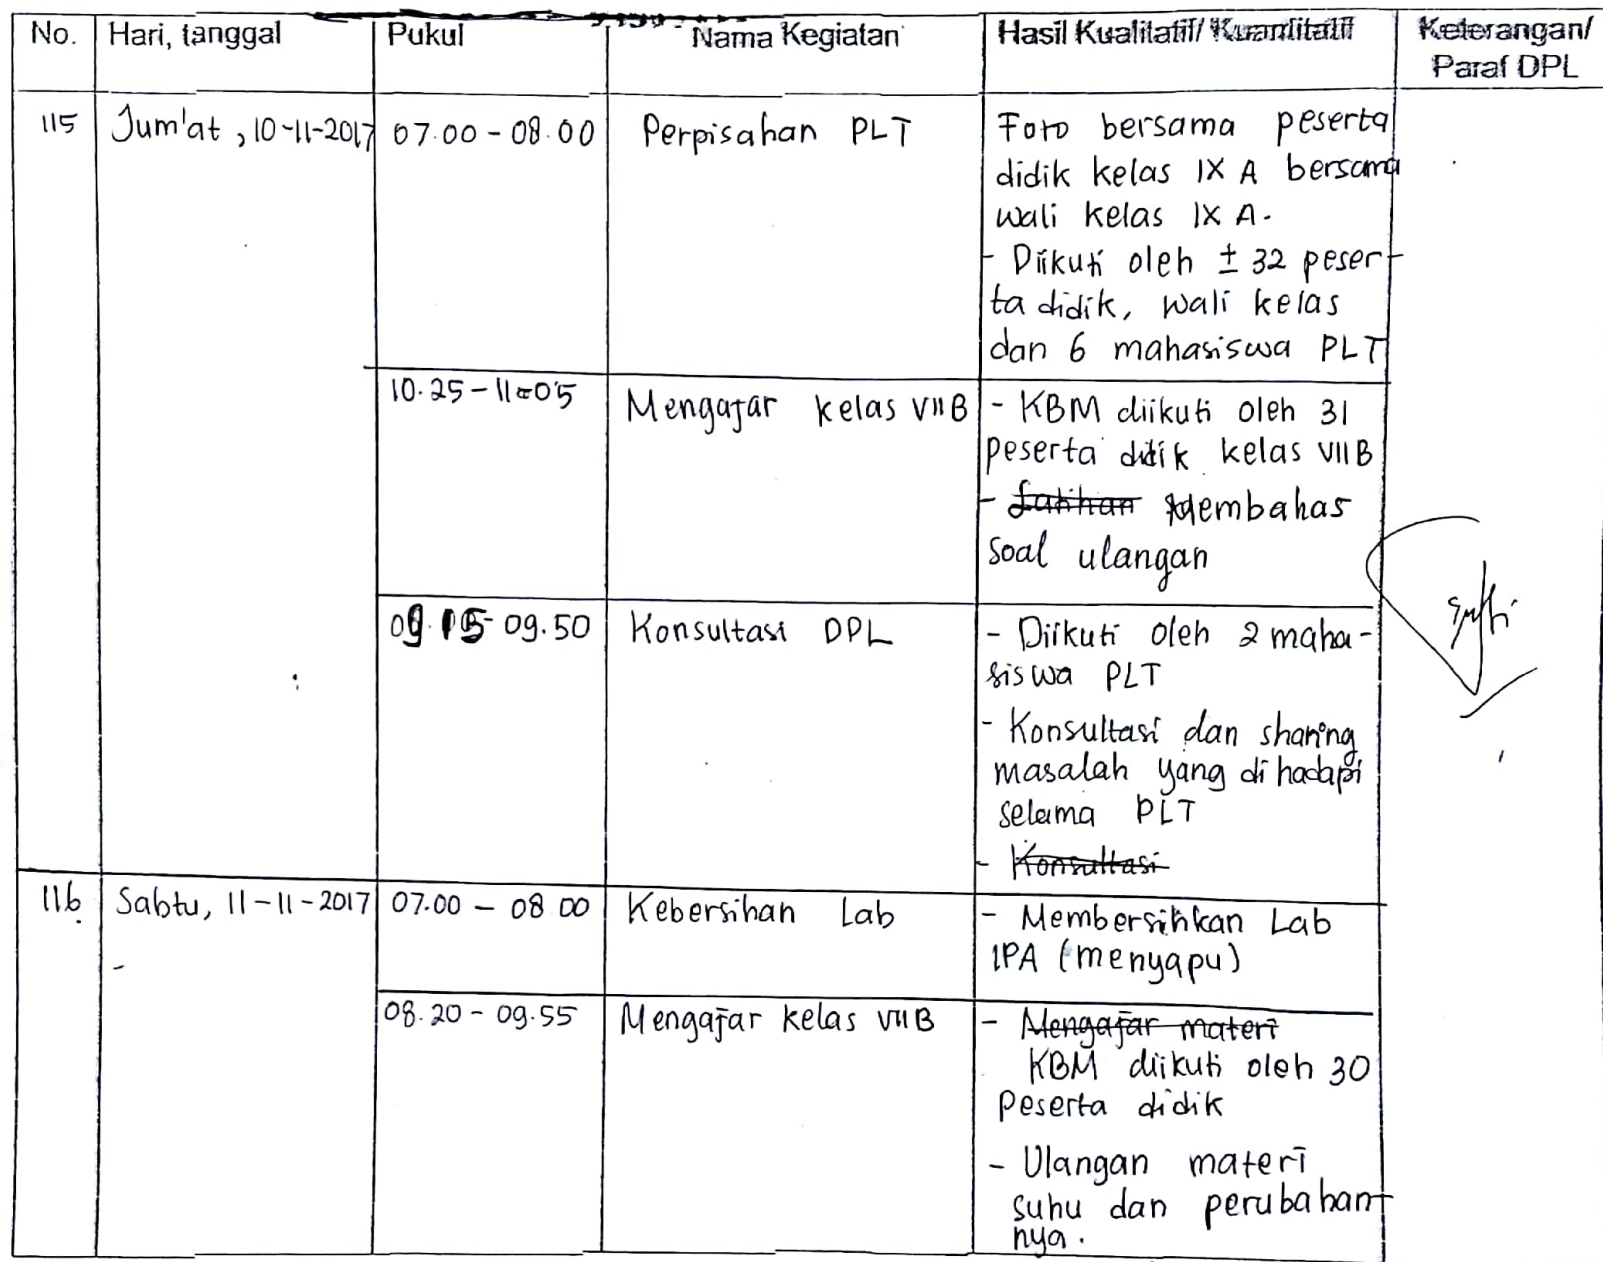 No. Hari, tanggal Pukul Nama Kegiatan Hasil Kualitatif/ Kuantitatif Keterangan/
Paraf DPL
115 Jum'at, 10-11-2017 07.00 - 08.00 Perpisahan PLT Foto bersama peserta
didik kelas IX A bersama
wali kelas IX A.
- Diikuti oleh ± 32 peser-
ta didik, wali kelas
dan 6 mahasiswa PLT
10.25 - 11.05 Mengajar kelas VII B - KBM diikuti oleh 31
peserta didik kelas VII B
- Latihan Membahas
soal ulangan
09.15 - 09.50 Konsultasi DPL - Diikuti oleh 2 maha-
siswa PLT
- Konsultasi dan sharing
masalah yang dihadapi
selama PLT
- Konsultasi
116 Sabtu, 11-11-2017 07.00 - 08.00 Kebersihan Lab - Membersihkan Lab
IPA (menyapu)
08.20 - 09.55 Mengajar kelas VII B - Mengajar materi
KBM diikuti oleh 30
Peserta didik
- Ulangan materi
suhu dan perubahan-
nya.